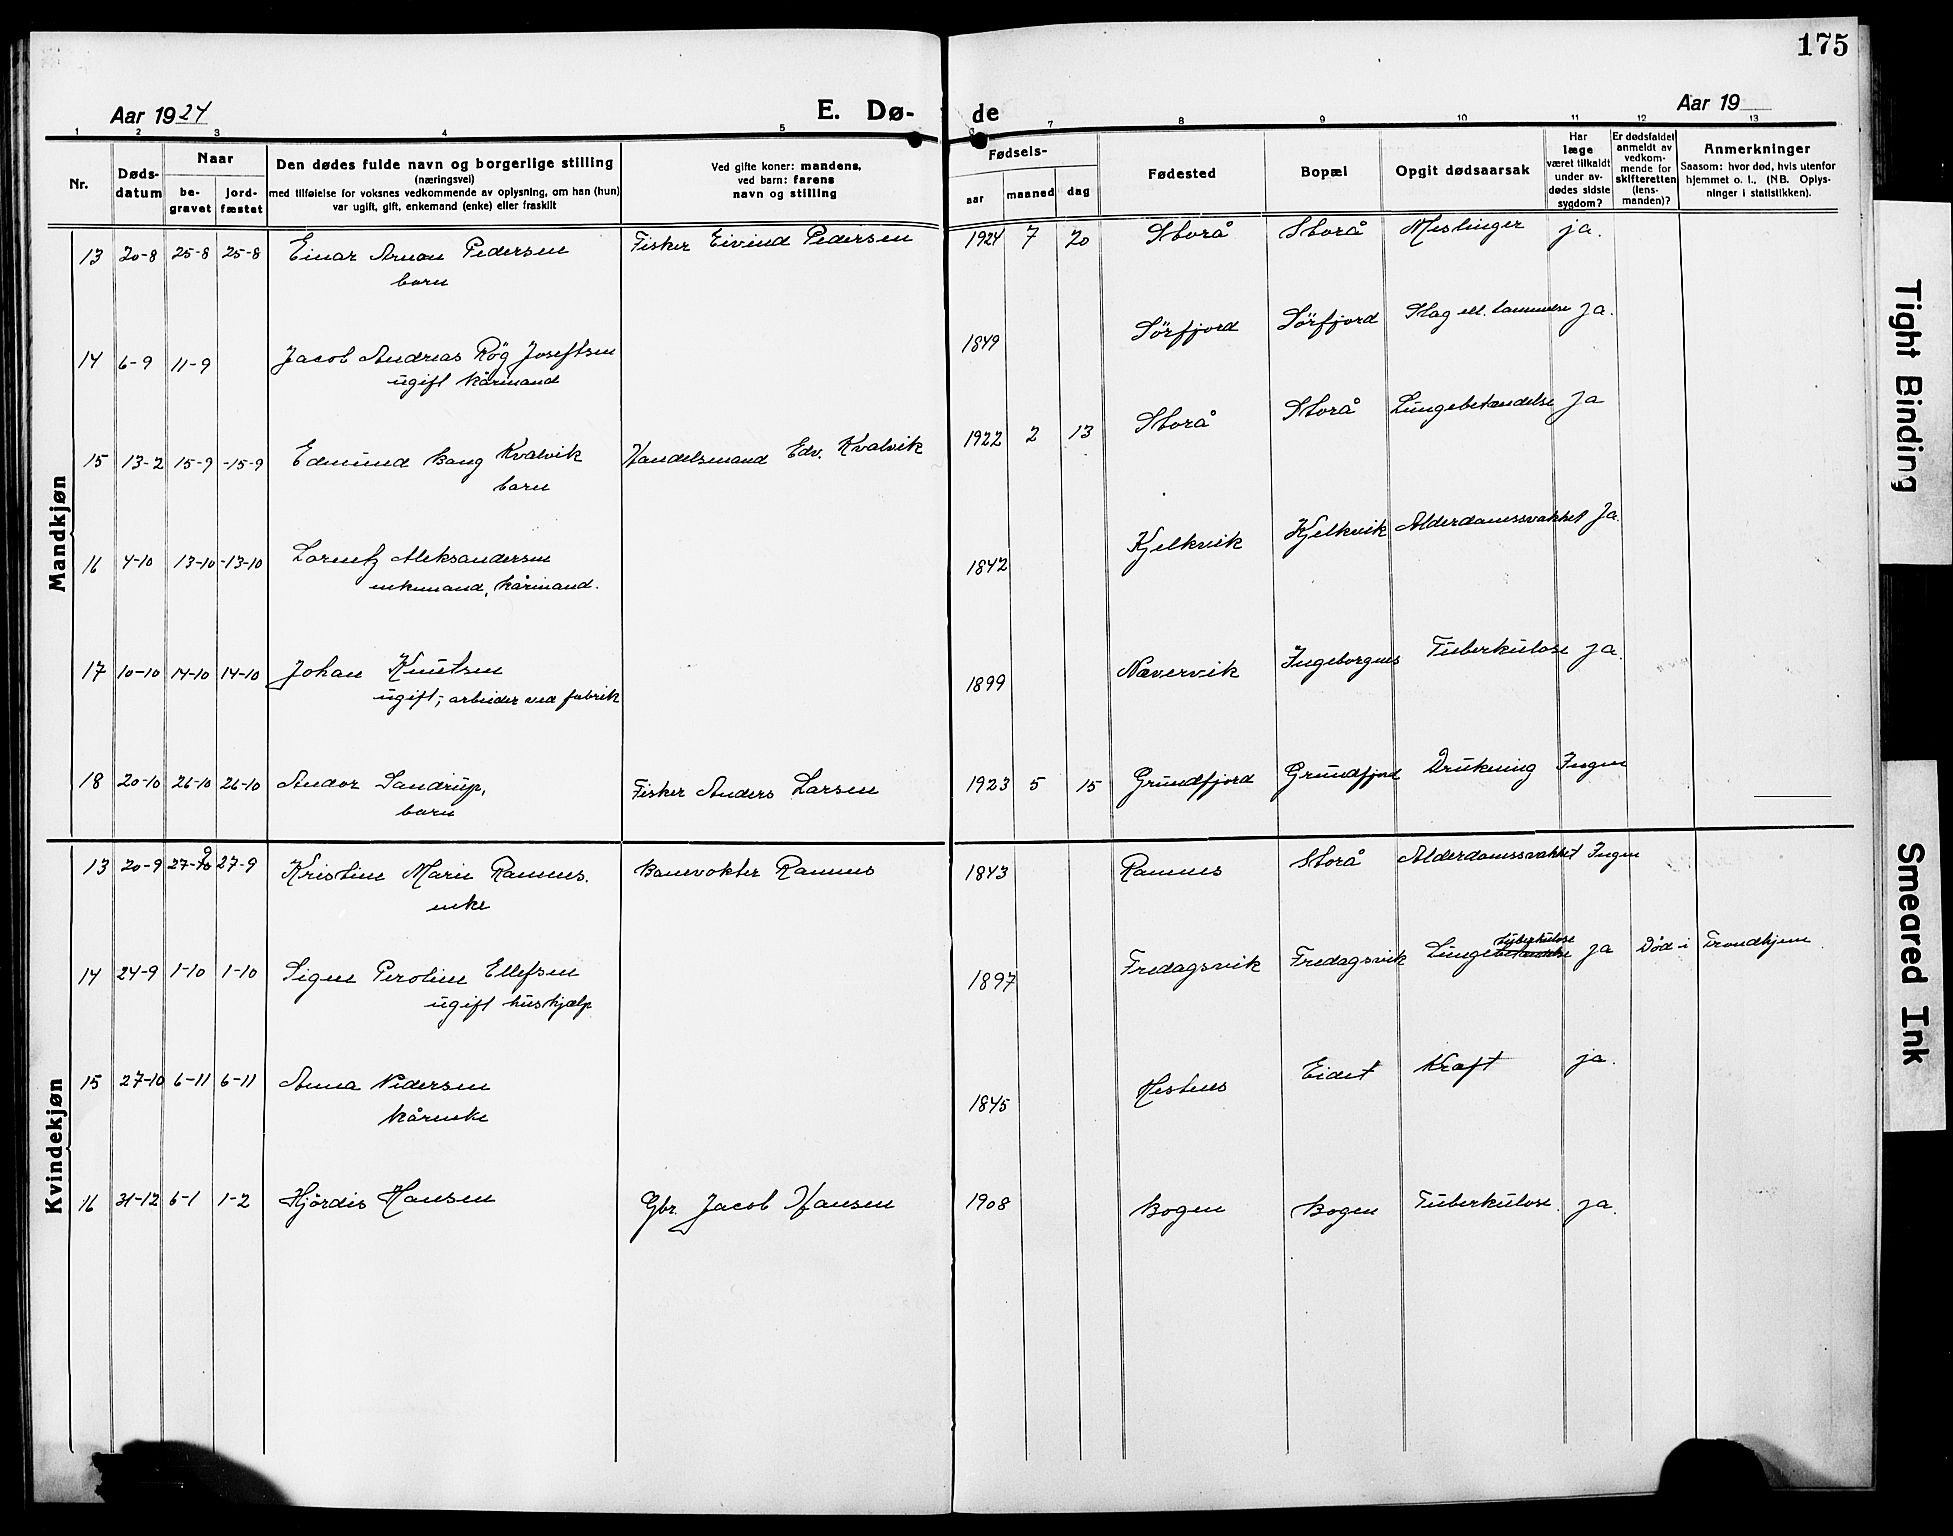 175
Aar 1924
E. Dø-
de
Aar 19
1 2 3 4 5 6 7 8 9 10 11 12 13
Nr.
Døds-
datum
Naar
be-
gravet
jord-
fæstet
Den dødes fulde navn og borgerlige stilling
(næringsvei)
med tilføielse for voksnes vedkommende av oplysning, om han (hun)
var ugift, gift, enkemand (enke) eller fraskilt
Ved gifte koner: mandens,
ved barn: farens
navn og stilling
Fødsels-
aar
maaned
dag
Fødested
Bopæl
Opgit dødsaarsak
Har
læge
været tilkaldt
under av-
dødes sidste
sygdom?
Er dødsfaldet
anmeldt av
vedkom-
mende for
skifteretten
(lens-
manden)?
Anmerkninger
Saasom: hvor død, hvis utenfor
hjemmet o. l., (NB. Oplys-
ninger i statistikken).
Mandkjøn
13 20-8 25-8 25-8 Einar Arnon Pedersen Fisker Eivind Pedersen 1924 7 20 Storå Storå Meslinger ja.
barn
14 6-9 11-9 Jacob Andreas Røg Joseftsen 1849 Sørfjord Sørfjord Slag ell. lammelse Ja.
ugift kårmand
15 13-2 15-9 -15-9 Edmund Bang Kvalvik Handelsmand Edv. Kvalvik 1922 2 13 Storå Storå Lungebetændelse Ja
barn
16 4-10 13-10 -13-10 Lorentz Aleksandersen 1842 Kjelkvik Kjelkvik Alderdomssvakhet Ja.
enkemand, kårmand.
17 10-10 14-10 14-10 Johan Knutsen 1899 Navervik Ingeborgnes Tuberkulose ja.
ugift; arbeider ved fabrik
18 20-10 26-10 26-10 Andor Sandrup, Fisker Anders Larsen 1923 5 15 Grundfjord Grundfjord Drukning Ingen
barn
Kvindekjøn
13 20-9 27-9 27-9 Kristine Marie Ramnes. Banevokter Ramnes 1843 Ramnes Storå Alderdomssvakhet Ingen
enke
14 24-9 1-10 1-10 Signe Peroline Ellefsen 1897 Fredagsvik Fredagsvik Lungebetændelse tuberkulose ja Død i Trondhjem
ugift hushjælp
15 27-10 6-11 6-11 Anna Pedersen 1845 Hestnes Eidet Kræft ja.
kårenke
16 31-12 6-1 1-2 Hjørdis Hansen Gbr. Jacob Hansen 1908 Bogen Bogen Tuberkulose. ja.
Tight Binding
Smeared Ink